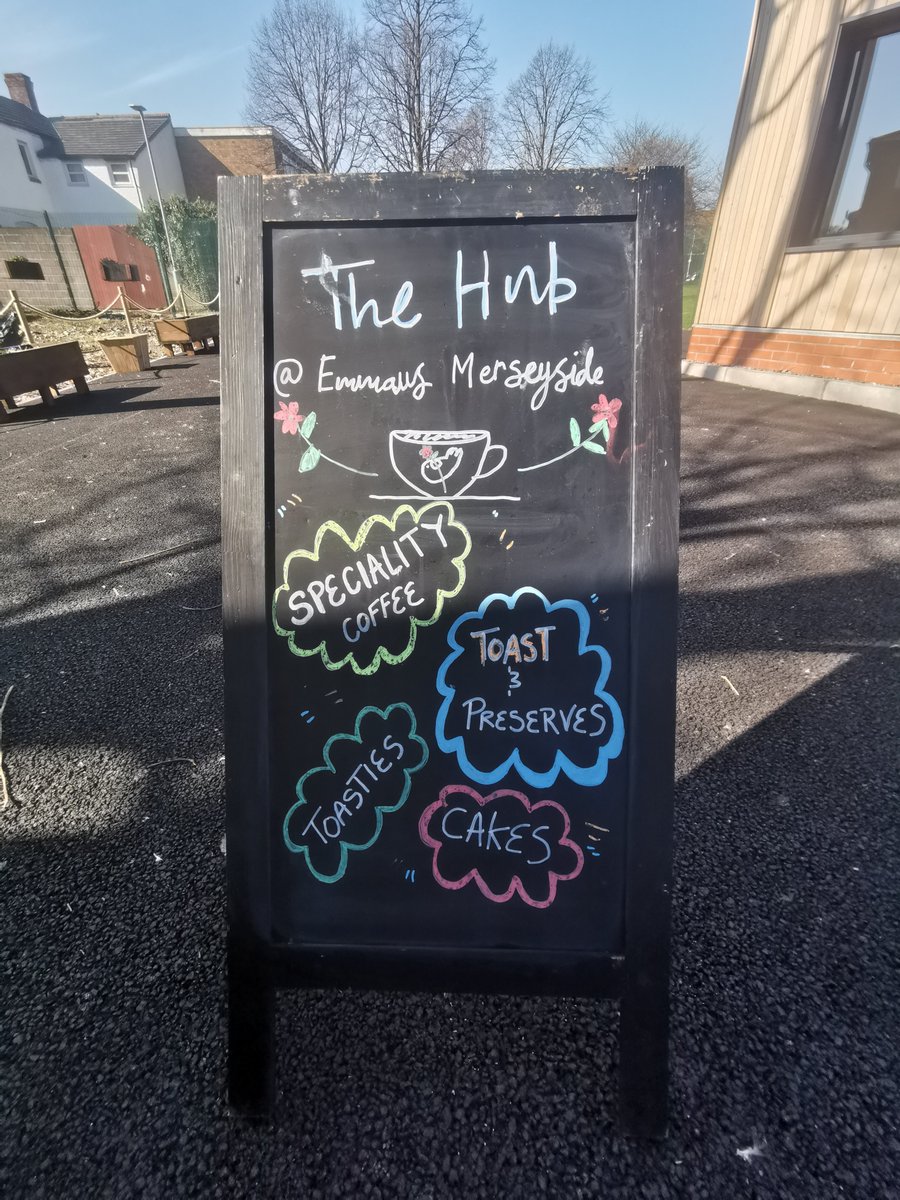 The Hub
@ Emmaus Merseyside
SPECIALITY
COFFEE
TOAST
&
PRESERVES
TOASTIES
CAKES